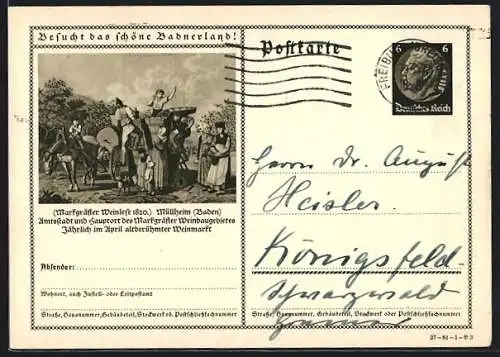 Besucht das schöne Badnerland!
Postkarte
6 6
Deutsches Reich
(Markgräfler Weinlese 1820.) Müllheim (Baden)
Amtsstadt und Hauptort des Markgräfler Weinbaugebietes
Jährlich im April altberühmter Weinmarkt
Absender:
Wohnort, auch Zustell- oder Leitpostamt
Straße, Hausnummer, Gebäudeteil, Stockwerk od. Postschließfachnummer
Herrn Dr. August
Heisler.
Königsfeld
Schwarzwald
Straße, Hausnummer, Gebäudeteil, Stockwerk oder Postschließfachnummer
37-81-1-B3